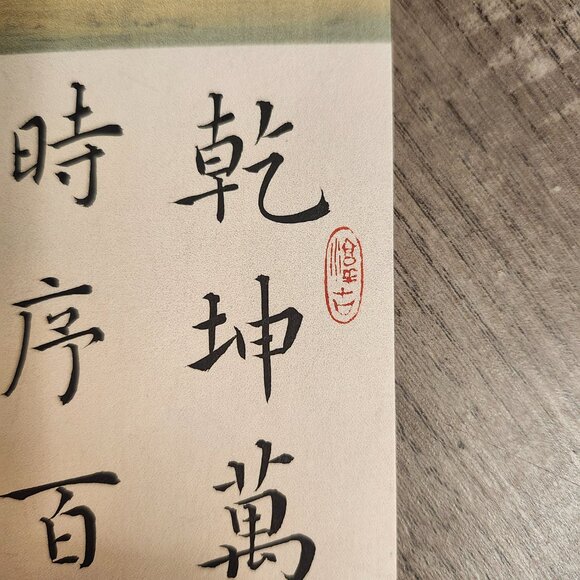 乾坤萬
時序百